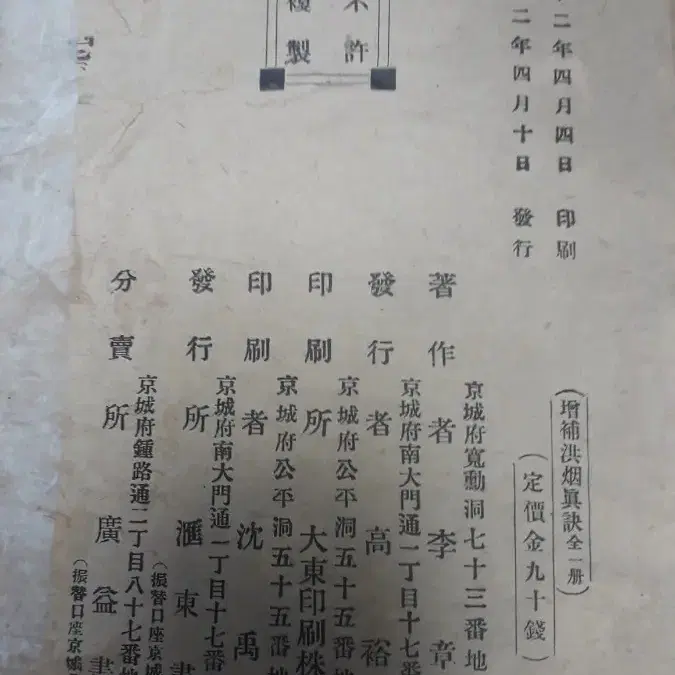 二年四月四日 印刷
二年四月十日 發行
不許
複製
(增補洪烟眞訣全一册)
(定價金九十錢)
京城府寬勳洞七十三番地
著作者 李章
京城府南大門通一丁目十七番
發行者 高裕
京城府公平洞五十五番地
印刷所 大東印刷株
京城府公平洞五十五番地
印刷者 沈禹
京城府南大門通一丁目十七番
發行所 滙東書
(振替口座京城
京城府鍾路通二丁目八十七番地
分賣所 廣益書
(振替口座京城